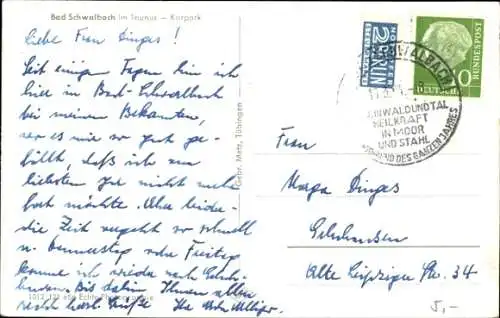 Bad Schwalbach im Taunus – Kurpark
Liebe Frau Dinges!
Seit einigen Tagen bin ich
hier in Bad-Schwalbach
bei meinen Bekannten,
wo es mir so gut ge-
fällt, daß ich am
liebsten gar nicht mehr
fort möchte. Aber leider
die Zeit vergeht so schnell
u. Donnerstag oder Freitag
komme ich wieder nach
Bis dahin Ihnen allen
recht herzl. Grüße Ihre
Gebr. Metz, Tübingen
NOTOPFER
2 BERLIN
STEUERMARKE
DEUTSCHE BUNDESPOST
SCHWALBACH
IN WALD UND TAL
HEILKRAFT
IN MOOR
UND STAHL
DES GANZEN JAHRES
Frau
Dinges
Gelnhausen
Alte Leipziger Str. 34
5,-